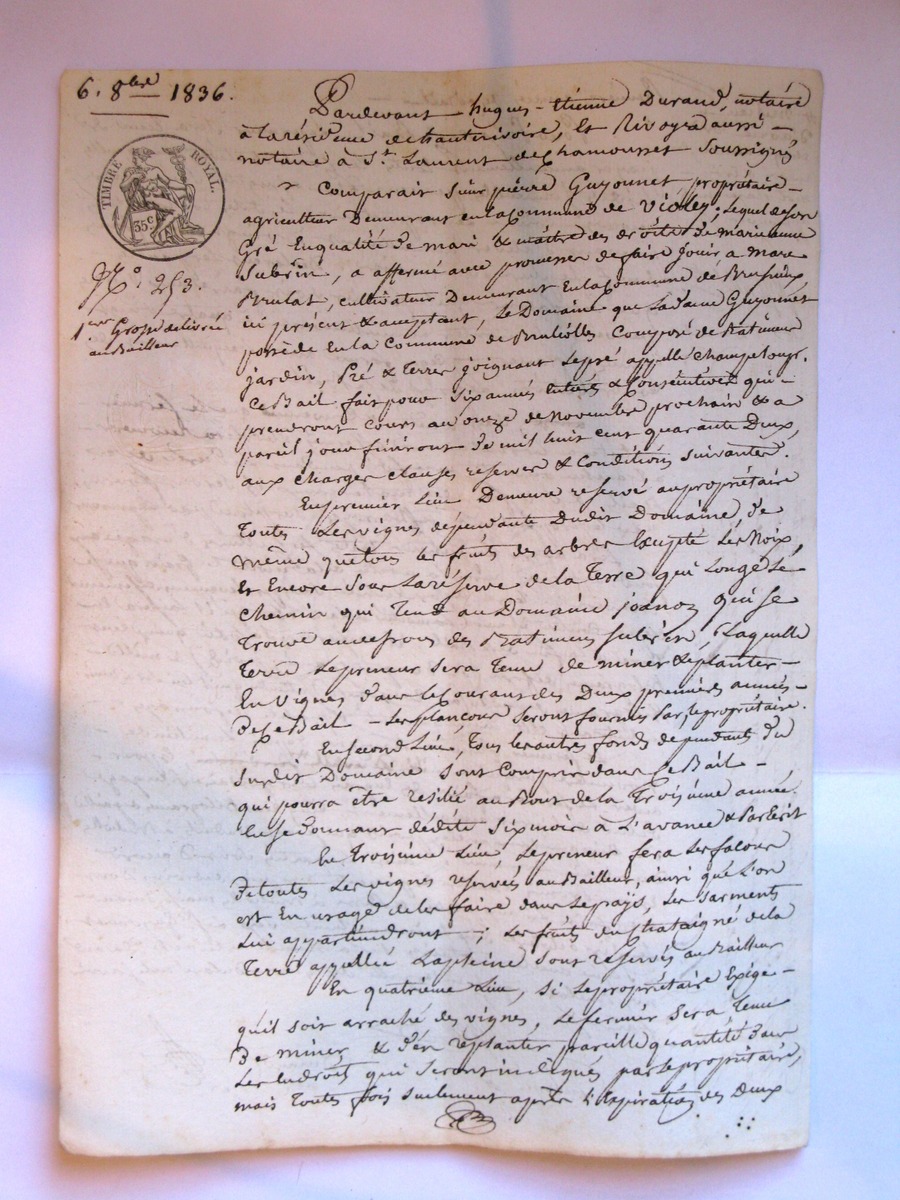 6. 8bre 1836.
TIMBRE ROYAL.
35c
No. 253.
1ere Grosse delivrée
au Bailleur
Pardevant hugues-Etienne Durand, notaire
à la résidence de hauterivoire, Et Rivoyra aussi
notaire à St. Laurent de Chamousset Soussignés
Comparait Sieur pierre Guyonnet, propriétaire
agriculteur Demeurant en la Commune de violay; lequel de son
Gré En qualité de mari & maître des droits de marieanne
Subrin, a affermé avec promesse de faire jouir a marc
Brulat, cultivateur Demeurant En la Commune de Brusieux
ici présent & acceptant, le Domaine que la dame Guyonnet
possède En la Commune de Brulliolles Composé de Batiment
jardin, Pré & Terres joignant le pré appellé Champ long.
Ce Bail fait pour six années Entières & Consécutives qui
prendront cours au onze de novembre prochain & a
pareil jour finiront de mil huit cent quarante Deux,
aux charges clauses reserves & Conditions suivantes.
En premier Lieu Demeure reservé au propriétaire
Toutes les vignes dépendante Dudit Domaine, de
même que tous les fruits des arbres Excepté les Noix,
Et Encore Sous la réserve de la Terre qui Longe Le
Chemin qui Tend au Domaine joanoz qui se
Trouve des Batiments Subrin, Laquelle
Terre le preneur sera Tenu de miner & planter
En vignes dans le Courant des Deux premières années
De ce Bail - les seront fournis Par le propriétaire.
En second Lieu, Tous les autres fonds dependants du
susdit Domaine sont Compris dans Ce Bail
qui pourra être résilié au Bout de la Troisième année
En se donnant dédite six mois à l'avance & Par Ecrit
En Troisième Lieu, le preneur fera les façons
De toutes les vignes reservées au Bailleur, ainsi que l'on
est En usage de les faire dans le pays, les sarments
lui appartiendront; les fruits du chataigné de la
Terre appellée Lapleine sont reservés au Bailleur
En quatrième Lieu, si le propriétaire Exige
qu'il soit arraché des vignes, le fermier sera Tenu
De miner & d'en replanter pareille quantité dans
les endroits qui seront indiqués par le propriétaire,
mais Toutes fois seulement après l'Expiration des Deux